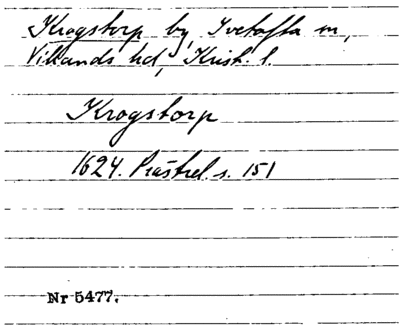 Krogstorp by, Ivetofta sn,
Villands hd, Krist. l.
Krogstorp
1624. Prästrel. s. 151
Nr 5477.